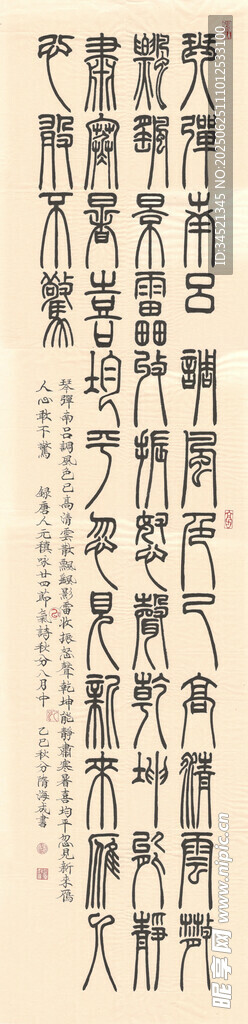 琴彈南呂調風色已高清雲散
飄颻景靁收振怒聲乾坤能靜
肅寒暑喜均平忽見新來雁人
心敢不驚
琴彈南呂調風色已高清雲散飄颻影雷收振怒聲乾坤能靜肅寒暑喜均平忽見新來鴈
人心敢不驚 錄唐人元稹詠廿四節氣詩秋分八月中 乙巳秋分隋海成書
ID:34521345 NO.20250625111012533100
昵享网 www.nipic.cn